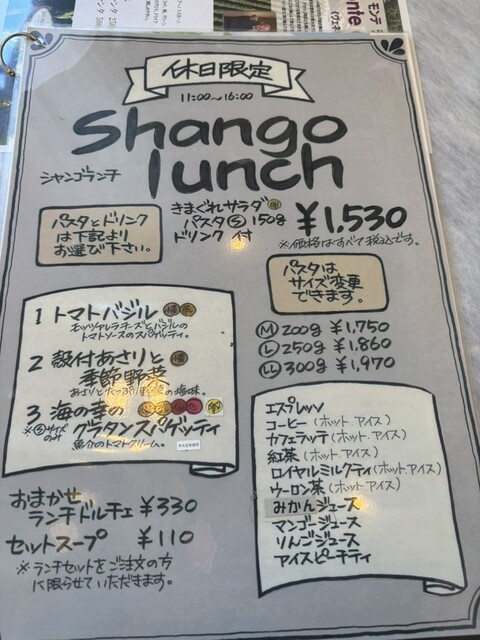 モンテ
休日限定
11:00~16:00
Shango
lunch
シャンゴランチ
パスタとドリンク
は下記より
お選び下さい。
きまぐれサラダ
パスタ Ⓢ 150g
ドリンク付
¥1,530
※価格はすべて税込です。
パスタは
サイズ変更
できます。
Ⓜ 200g ¥1,750
Ⓛ 250g ¥1,860
LL 300g ¥1,970
1 トマトバジル
モッツァレラチーズとバジルの
トマトソースのスパゲッティ。
2 殻付あさりと
季節野菜
あさりとたっぷり野菜の塩味。
3 海の幸の
※Ⓢサイズ
のみ
グラタンスパゲッティ
魚介のトマトクリーム。
おまかせ
ランチドルチェ ¥330
セットスープ ¥110
※ランチセットをご注文の方
に限らせていただきます。
エスプレッソ
コーヒー(ホット.アイス)
カフェラッテ(ホット.アイス)
紅茶(ホット.アイス)
ロイヤルミルクティ(ホット.アイス)
ウーロン茶(ホット.アイス)
みかんジュース
マンゴージュース
りんごジュース
アイスピーチティ